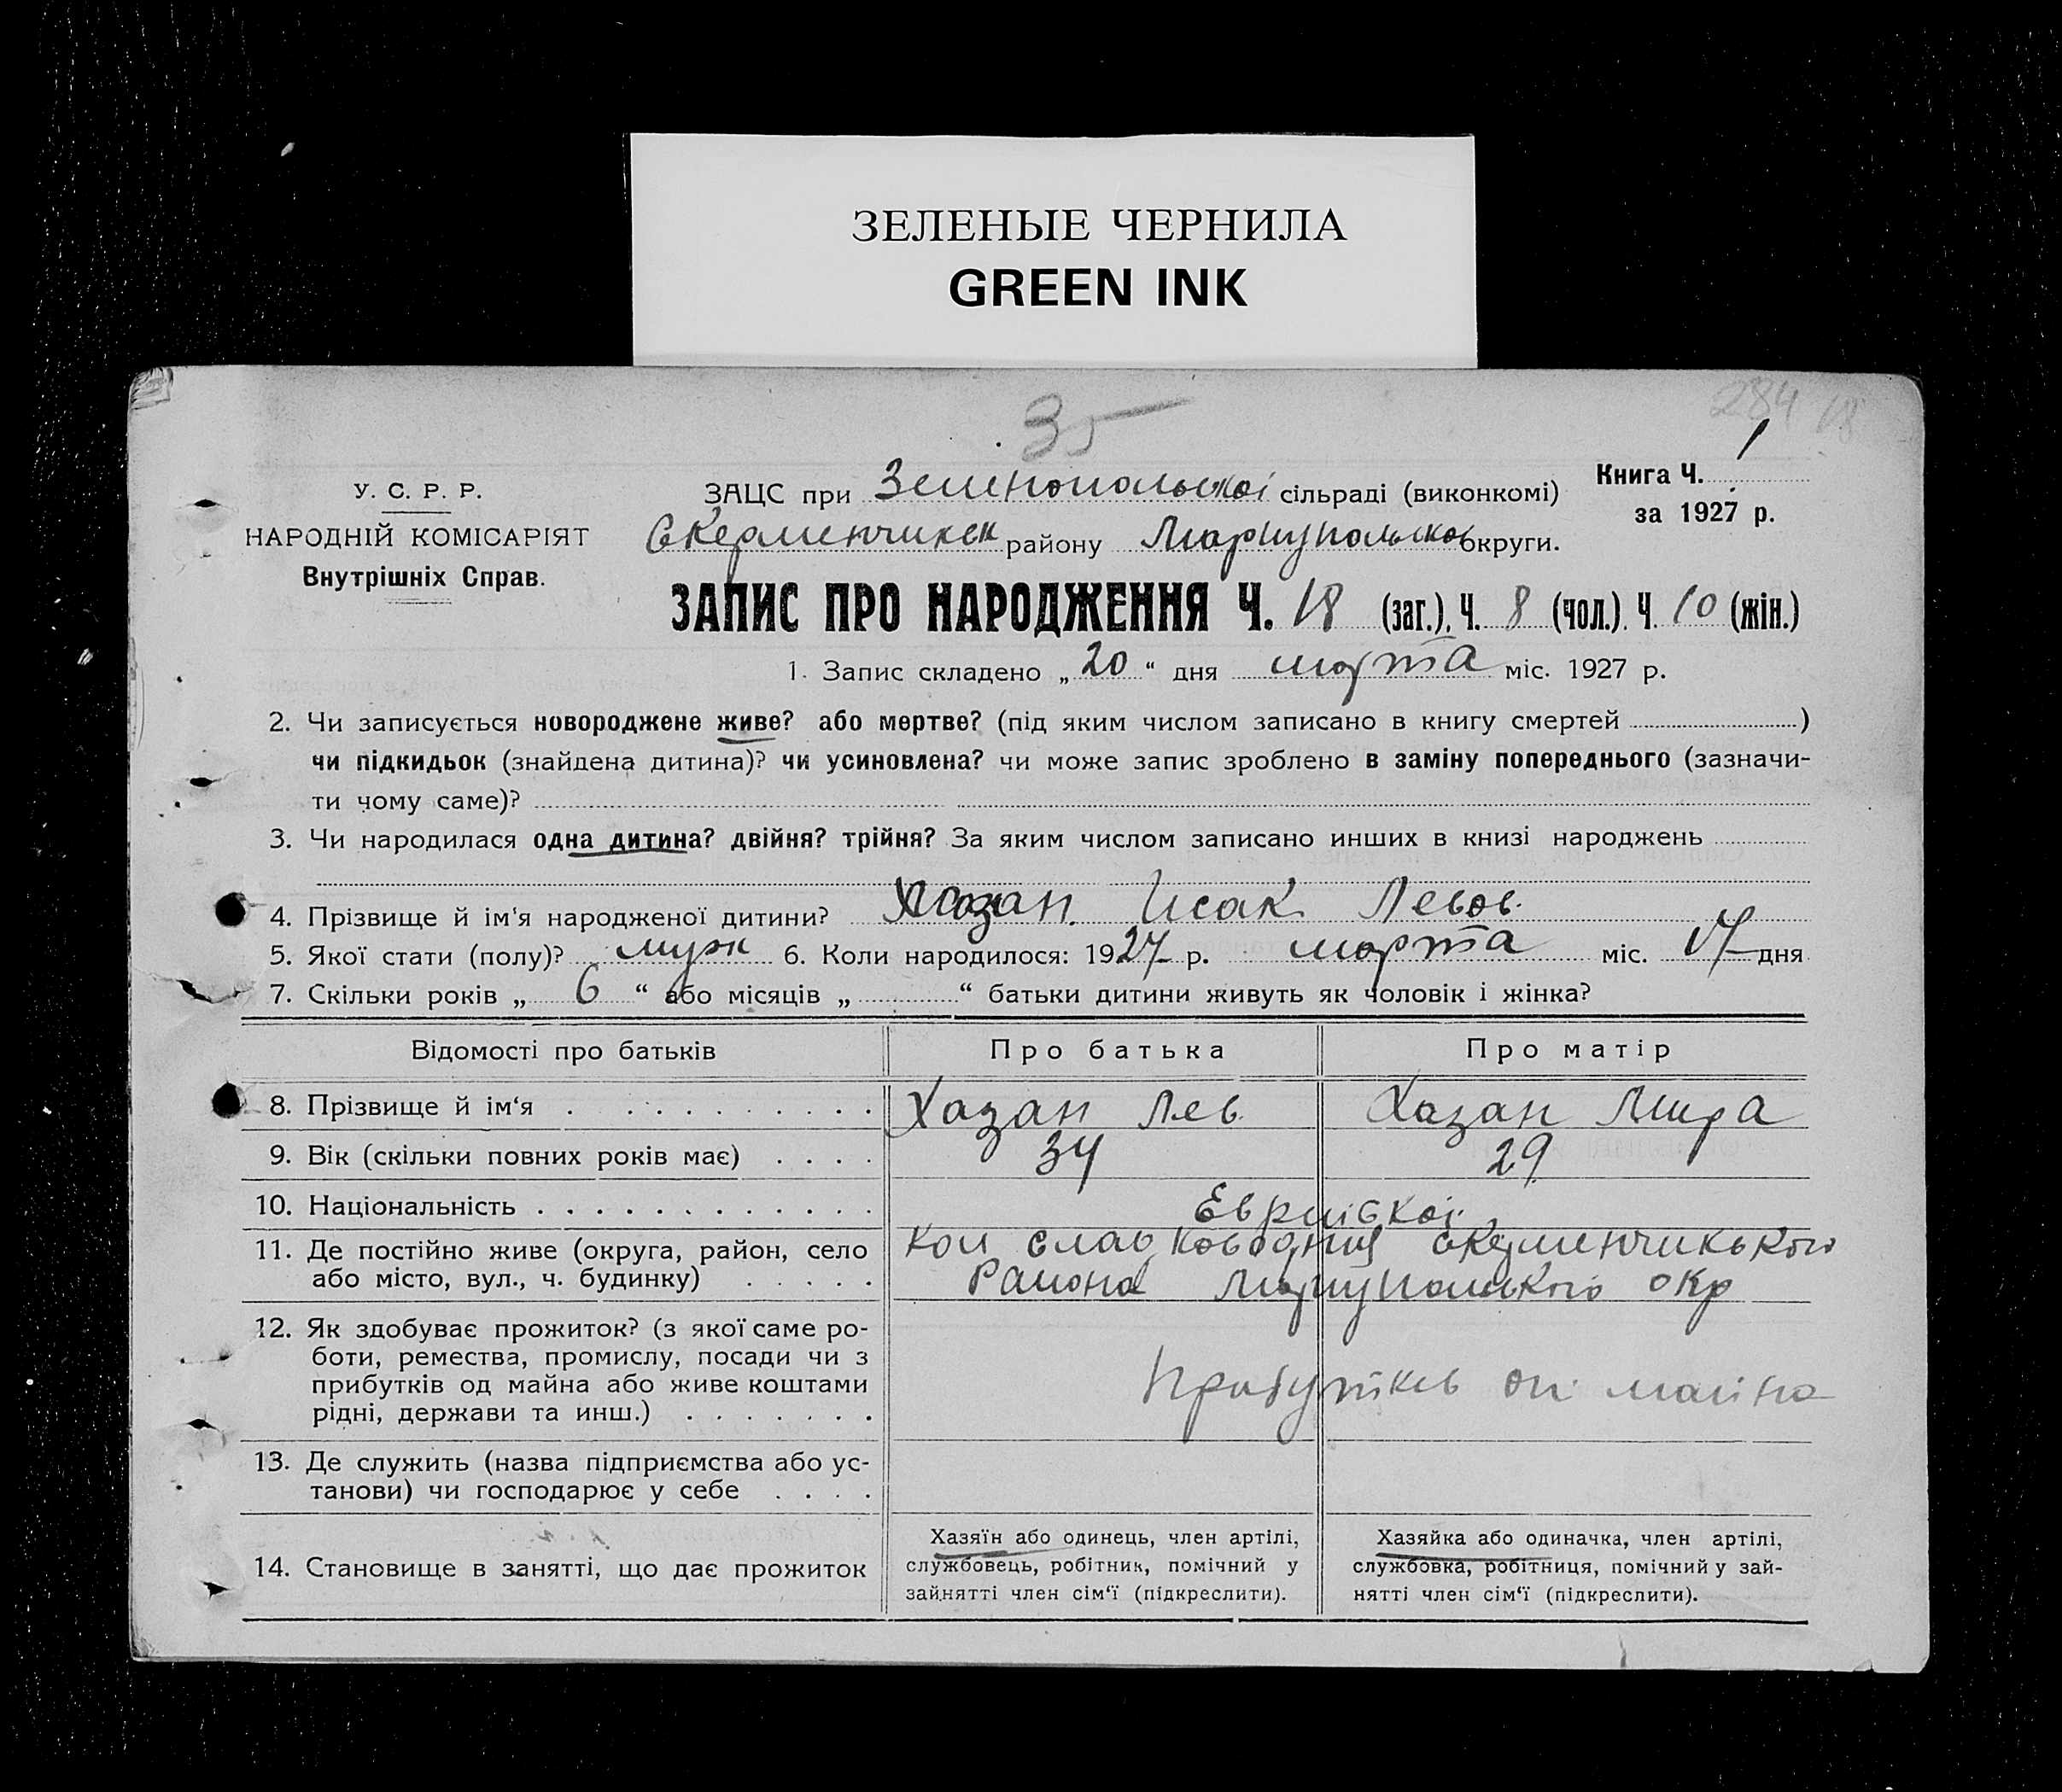 ЗЕЛЕНЫЕ ЧЕРНИЛА
GREEN INK
35
284 18
У. С. Р. Р.
НАРОДНІЙ КОМІСАРІЯТ
Внутрішніх Справ.
ЗАЦС при Зеленопольской сільраді (виконкомі)
Скерменчикск району Мариупольской округи.
Книга Ч. 1
за 1927 р.
ЗАПИС ПРО НАРОДЖЕННЯ Ч. 18 (заг.), Ч. 8 (чол.). Ч. 10 (жін.)
1. Запис складено „ 20 “ дня марта міс. 1927 р.
2. Чи записується новороджене живе? або мертве? (під яким числом записано в книгу смертей )
чи підкидьок (знайдена дитина)? чи усиновлена? чи може запис зроблено в заміну попереднього (зазначи-
ти чому саме)?
3. Чи народилася одна дитина? двійня? трійня? За яким числом записано инших в книзі народжень
4. Прізвище й ім‘я народженої дитини? Хазан Исак Левов.
5. Якої стати (полу)? муж 6. Коли народилося: 1927 р. марта міс. 17 дня
7. Скільки років „ 6 “ або місяців „ “ батьки дитини живуть як чоловік і жінка?
Відомості про батьків
Про батька
Про матір
8. Прізвище й ім‘я
Хазан Лев
Хазан Мира
9. Вік (скільки повних років має)
34
29
10. Національність
11. Де постійно живе (округа, район, село
або місто, вул., ч. будинку)
Района окр
12. Як здобуває прожиток? (з якої саме ро-
боти, ремества, промислу, посади чи з
прибутків од майна або живе коштами
рідні, держави та инш.)
13. Де служить (назва підприємства або ус-
танови) чи господарює у себе
14. Становище в занятті, що дає прожиток
Хазяїн або одинець, член артілі,
службовець, робітник, помічний у
зайнятті член сім‘ї (підкреслити).
Хазяйка або одиначка, член артілі,
службовка, робітниця, помічний у зай-
нятті член сім‘ї (підкреслити).